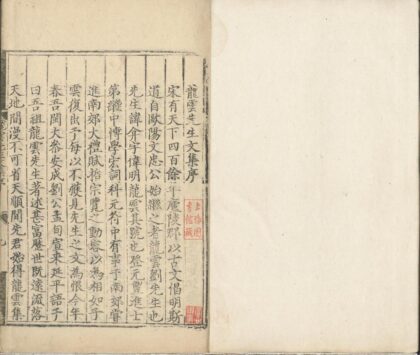 龍雲先生文集序
宋有天下四百餘年廬陵郡以古文倡明斯
道自歐陽文忠公始繼之者龍雲劉先生也
先生諱弇字偉明龍雲其號也登元豐進士
第繼中博學宏詞科元符中有事于南郊嘗
進南郊大禮賦哲宗覽之動容以為相如子
雲復出予每以不獲見先生之文為恨今年
春吾閩大參安成劉公孟旬宣來延平語予
曰吾祖龍雲先生著述甚富歷世既遠流落
天地間漫不可省天順間先君始得龍雲集